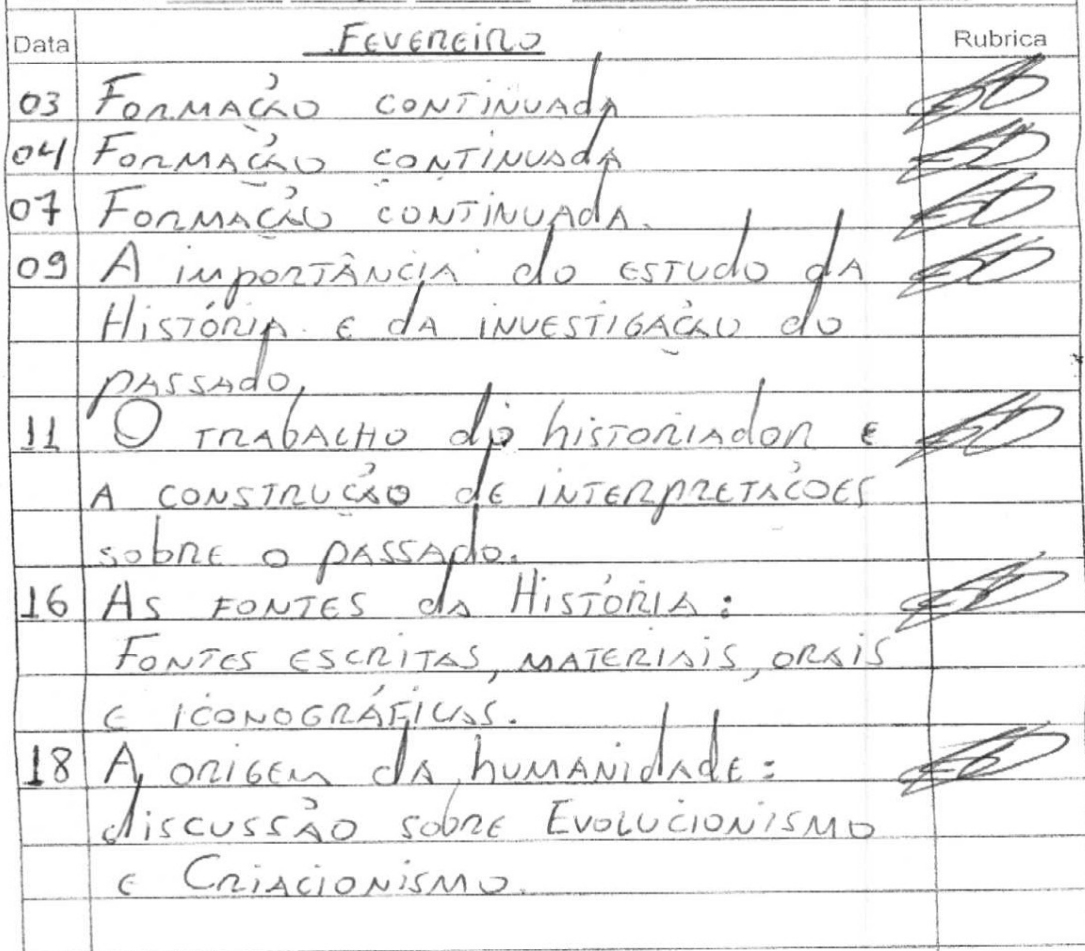 Data Fevereiro Rubrica
03 Formação continuada
04 Formação continuada
07 Formação continuada.
09 A importância do estudo da
História e da investigação do
passado.
11 O trabalho do historiador e
a construção de interpretações
sobre o passado.
16 As fontes da História:
Fontes escritas, materiais, orais
e iconográficas.
18 A origem da humanidade:
discussão sobre Evolucionismo
e Criacionismo.